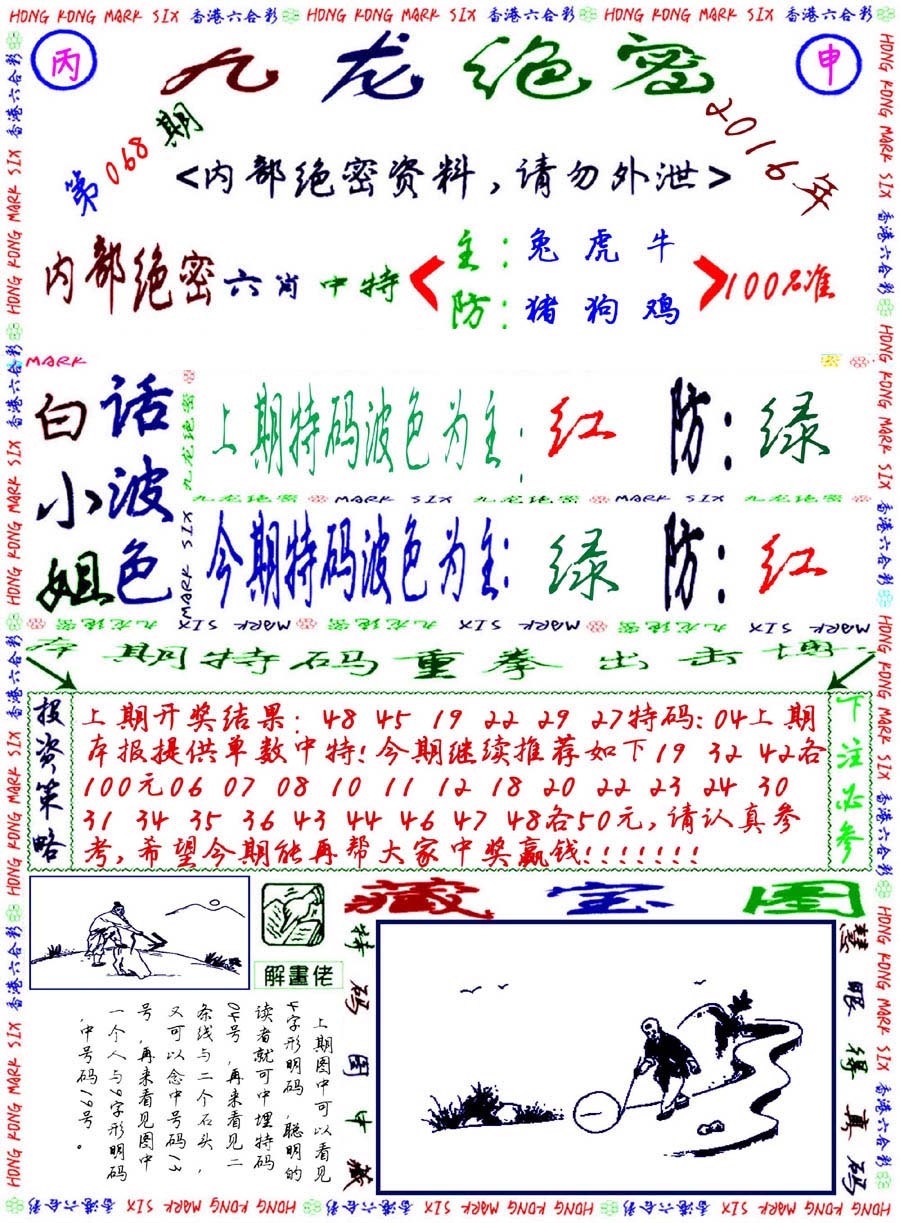 HONG KONG MARK SIX 香港六合彩 HONG KONG MARK SIX 香港六合彩 HONG KONG MARK SIX 香港六合彩
丙 九龙绝密 申
第068期
2016年
<内部绝密资料,请勿外泄>
内部绝密六肖中特
主:兔虎牛
防:猪狗鸡
100%准
MARK
白话
小波
姐色
上期特码波色为主:红 防:绿
九龙绝密 MARK SIX 九龙绝密 MARK SIX 九龙绝密
今期特码波色为主:绿 防:红
MARK SIX 九龙绝密 MARK SIX 九龙绝密 MARK SIX 九龙绝密
本期特码重拳出击
投资策略
上期开奖结果:48 45 19 22 29 27特码:04上期
本报提供单数中特!今期继续推荐如下19 32 42各
100元06 07 08 10 11 12 18 20 22 23 24 30
31 34 35 36 43 44 46 47 48各50元,请认真参
考,希望今期能再帮大家中奖赢钱!!!!!!!
下注必参
藏宝图
解畫佬
特码图中藏
慧眼得真码
上期图中可以看见
4字形明码,聪明的
读者就可中埋特码
04号,再来看见二
条线与二个石头,
又可以念中号码13
号,再来看见图中
一个人与9字形明码
,中号码19号。
HONG KONG MARK SIX 香港六合彩 HONG KONG MARK SIX 香港六合彩 HONG KONG MARK SIX 香港六合彩